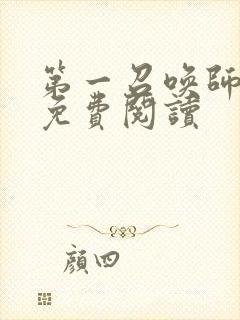 第一召喚師
免費閱讀
顏四